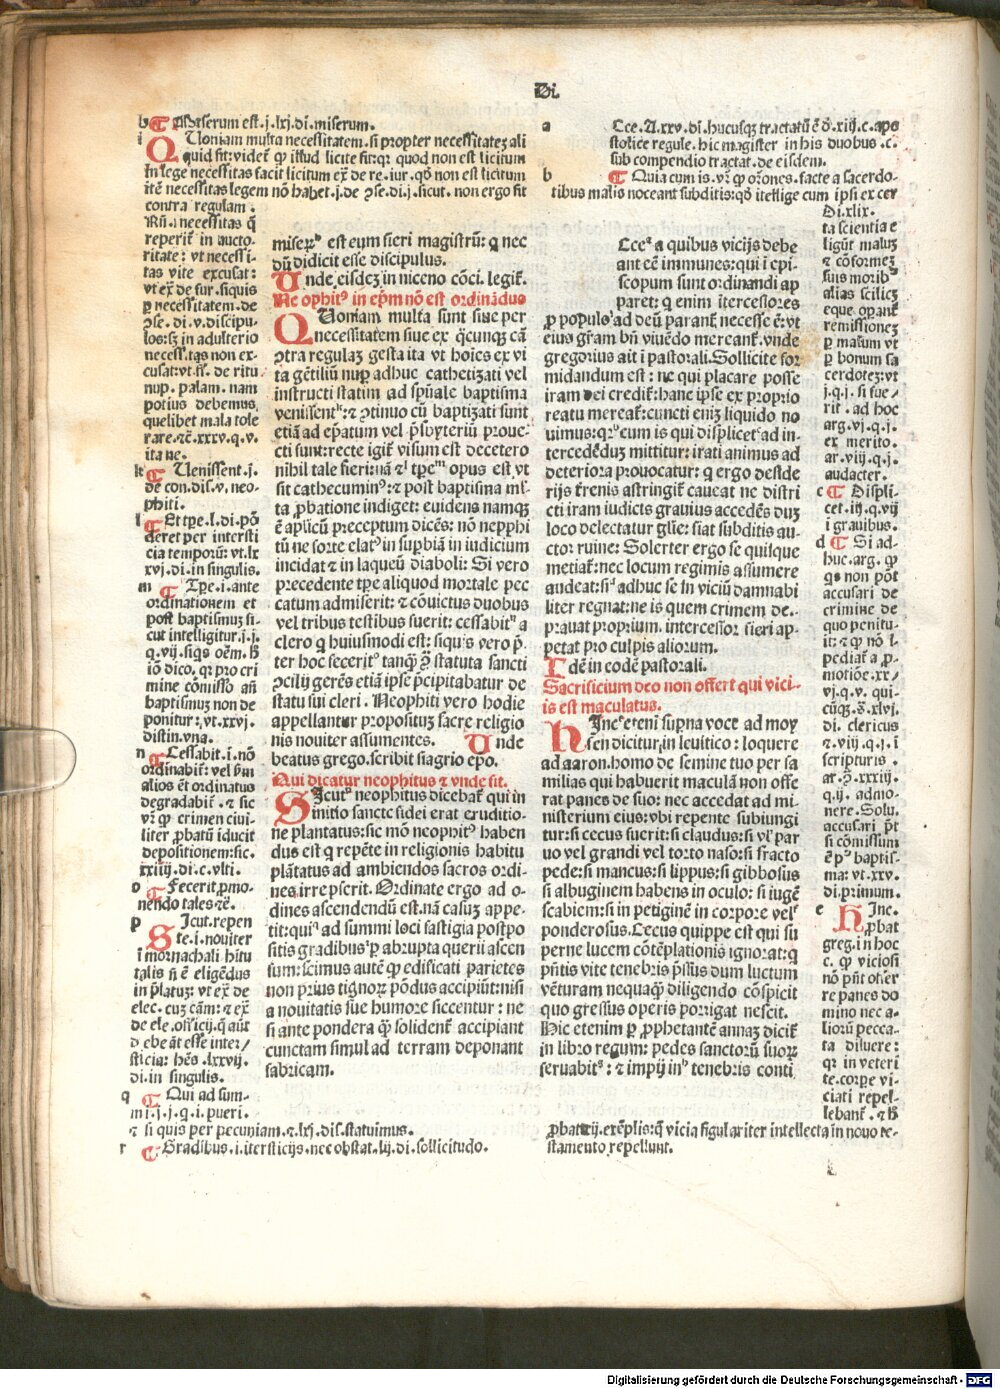 Di.
h ¶ Miserum est.j.lxj.di.miserum.
i QUoniam multa necessitatem.si propter necessitatez ali
quid fit:videt̃ ꝙ illud licite fit:qꝛ quod non est licitum
in lege necessitas facit licitum ex̃ de re.iur.qd̃ non est licitum
itẽ necessitas legem nõ habet.j.de ꝯse.di.j.sicut.non ergo fit
contra regulam.
Rñ.i necessitas q̃
reperit̃ in aucto-
ritate: vt necessi-
tas vite excusat:
vt ex̃ de fur.siquis
ꝑ necessitatem.de
ꝯse.di.v.discipu-
los:sꝫ in adulterio
necessitas non ex-
cusat:vt.ff.de ritu
nup.palam.nam
potius debemus
quelibet mala tole
rare.⁊c̃.xxxv.q.v.
ita ne.
k ¶ Uenissent.j.
de con.dis.v.neo-
phiti.
l ¶ Et tpe.l.di.põ
deret per intersti
cia temporũ:vt.lx
xvj.di.in singulis.
m ¶ Tpe.i.ante
ordinationem et
post baptismuꝫ si-
cut intelligitur.j.j.
q.vij.siqs oẽm.h̃
iõ dico.qꝛ pro cri
mine cõmisso añ
baptismuꝫ non de
ponitur:vt.xxvj.
distin.vna.
n ¶ Cessabit.i.nõ
ordinabit̃:vel ṽm
alios et ordinatus
degradabit̃.⁊ sic
vr̃ ꝙ crimen ciui-
liter ꝓbatũ iducit
depositionem:sic.
xxiiij.di.c.vlti.
o ¶ Fecerit ꝓmo-
nendo tales ⁊c̃.
p SIcut.repen
te.i.nouiter
i monachali hitu
talis ñ ẽ eligẽdus
in p̃latuꝫ:vt ex̃ de
elec.cuꝫ cãm:⁊ ex̃
de ele.officij.q̃ aũt
debeãt esse inter/
sticia:hẽs.lxxvij.
di.in singulis.
q ¶ Qui ad sum-
mi.j.j.q.i.pueri.
⁊ si quis per pecuniam.⁊.lxj.dis.statuimus.
r ¶ Gradibus.i.itersticijs.nec obstat.lij.di.sollicitudo.
miserꝝʰ est eum fieri magistrũ:q nec
dũ didicit esse discipulus.
Unde eisdeꝫ in niceno cõci.legit̃.
Neophitꝰ in ep̃m nõ est ordinãdus
QUoniam multa sunt siue per
necessitatem siue ex q̃cunqꝫ cã
ꝯtra regulaꝫ gesta ita vt hoĩes ex vi
ta gẽtiliũ nuꝑ adhuc cathetizati vel
instructi statim ad sp̃uale baptisma
venissentᵏ:⁊ ꝯtinuo cũ baptizati sunt
etiã ad ep̃atum vel p̃sbyteriũ proue-
cti sunt:recte igit̃ visum est decetero
nihil tale fieri:nã ⁊ˡ tpeᵐ opus est vt
sit cathecuminꝰ:⁊ post baptisma ml̃-
ta ꝓbatione indiget:euidens namqꝫ
ẽ aplicũ p̃ceptum dicẽs:nõ neophi
tũ ne forte elatꝰ in suꝑbiã in iudicium
incidat ⁊ in laqueũ diaboli: Si vero
precedente tpe aliquod mortale pec
catum admiserit:⁊ cõuictus duobus
vel tribus testibus fuerit:cessabitⁿ a
clero q huiusmodi est:siquis vero p̃
ter hoc feceritᵒ tanqꝫ ꝯ̃ statuta sancti
ꝯcilij gerẽs etiã ipse p̃cipitabatur de
statu sui cleri.Neophiti vero hodie
appellantur propositũ sacre religio
nis nouiter assumentes.Unde
beatus grego.scribit siagrio ep̃o.
Qui dicatur neophitus ⁊ vnde sit.
SIcutᵖ neophitus dicebat̃ qui in
initio sancte fidei erat eruditio-
ne plantatus:sic mõ neophitꝰ haben
dus est q repẽte in religionis habitu
plãtatus ad ambiendos sacros ordi-
nes irrepserit.Ordinate ergo ad o-
dines ascendendũ est.nã casuꝫ appe-
tit:qui ad summi loci fastigia postpo
sitis gradibusʳ ꝑ abrupta querit ascen
sum:scimus autẽ ꝙ edificati parietes
non prius tignoꝝ põdus accipiũt:nisi
a nouitatis sue humore siccentur:ne
si ante pondera q̃ solident̃ accipiant
cunctam simul ad terram deponant
fabricam.
a Ecce.A.xxv.di.hucusqꝫ tractatũ ẽ d̃.xiij.c.apo
stolice regule.hic magister in his duobus.c.
sub compendio tractat.de eisdem.
b ¶ Quia cum is.vr̃ ꝙ or̃ones.facte a sacerdo-
tibus malis noceant subditis:qd̃ itellige cum ipsi ex cer
Di.xlix.
ta scientia e
ligũt maluꝫ
⁊ cõformeꝫ
suis moribꝰ
alias scilicꝫ
eque opant̃
remissioneꝫ
ꝑ malum vt
ꝑ bonum sa
cerdoteꝫ:vt
j.q.i.si fue/
rit.ad hoc
arg.vj.q.j.
ex merito.
ar.viij.q.j.
audacter.
c ¶ Displi-
cet.iij.q.vij
i grauibus.
d ¶ Si ad-
huc.arg.ꝙ
qs non põt
accusari de
crimine de
quo penitu-
it:⁊ ꝙ nõ i-
pediat̃ a ꝓ-
motiõe.xx/
vj.q.v.qui-
cũqꝫ.ꝯ̃.xlvj.
di.clericus
⁊.viij.q.j.i
scripturis.
ar.ꝯ̃.xxxiij.
q.ij.admo-
nere.Solu.
accusari p̃t
si cõmissum
ẽ pꝰ baptis-
ma:vt.xxv.
di.primum.
e HInc.
ꝓbat
greg.in hoc
c.ꝙ viciosi
nõ p̃nt offer
re panes do
mino nec a-
lioꝝ pecca-
ta diluere:
qꝛ in veteri
te.corpe vi-
ciati repel-
lebant̃.⁊ h̃
ꝓbat xij.exẽplis:q̃ vicia figulariter intellecta in nouo te-
stamento repellunt.
Ecceᵃ a quibus vicijs debe
ant cẽ immunes:qui i epi-
scopum sunt ordinandi ap
paret:q enim itercessores
ꝓ populoᵇ ad deũ parant̃ necesse ẽ:vt
eius gr̃am bñ viuẽdo mereant̃.vnde
gregorius ait i pastorali.Sollicite for
midandum est:ne qui placare posse
iram dei credit̃:hanc ipse ex proprio
reatu mereat̃:cuncti eniꝫ liquido no
uimus:qꝛᶜ cum is qui displicet̃ ad in-
tercedẽduꝫ mittitur:irati animus ad
deteriora prouocatur:q ergo deside
rijs t̃renis astringit̃ caueat ne distri
cti iram iudicis grauius accedẽs duꝫ
loco delectatur gl̃ie:fiat subditis au-
ctor ruine:Solerter ergo se quisque
metiat̃:nec locum regimis assumere
audeat:siᵈ adhuc se in viciũ damnabi
liter regnat:ne is quem crimem de-
prauat proprium.intercessor fieri ap-
petat pro culpis aliorum.
Idẽ in eodẽ pastorali.
Sacrificium deo non offert qui vici-
is est maculatus.
HIncᵉ eteni superna voce ad moy
sen dicitur,in leuitico:loquere
ad aaron.homo de semine tuo per fa
milias qui habuerit maculã non offe
rat panes deo suo:nec accedat ad mi-
nisterium eius:vbi repente subiungi
tur:si cecus fuerit:si claudus:si vl̃ par
uo vel grandi vel torto naso:si fracto
pede:si mancus:si lippus:si gibbosus
si albuginem habens in oculo:si iugẽ
scabiem:si in petiginẽ in corpore vel
ponderosus.Cecus quippe est qui su
perne lucem cõtẽplationis ignorat:q
p̃ntis vite tenebris p̃ssus dum luctum
vẽturam nequaqꝫ diligendo cõspicit
quo gressus operis porrigat nescit.
Hic etenim ꝑ ꝓphetantẽ annaꝫ dicit̃
in libro regum:pedes sanctorũ suorꝝ
seruabitᵍ:⁊ impij inʰ tenebris conti